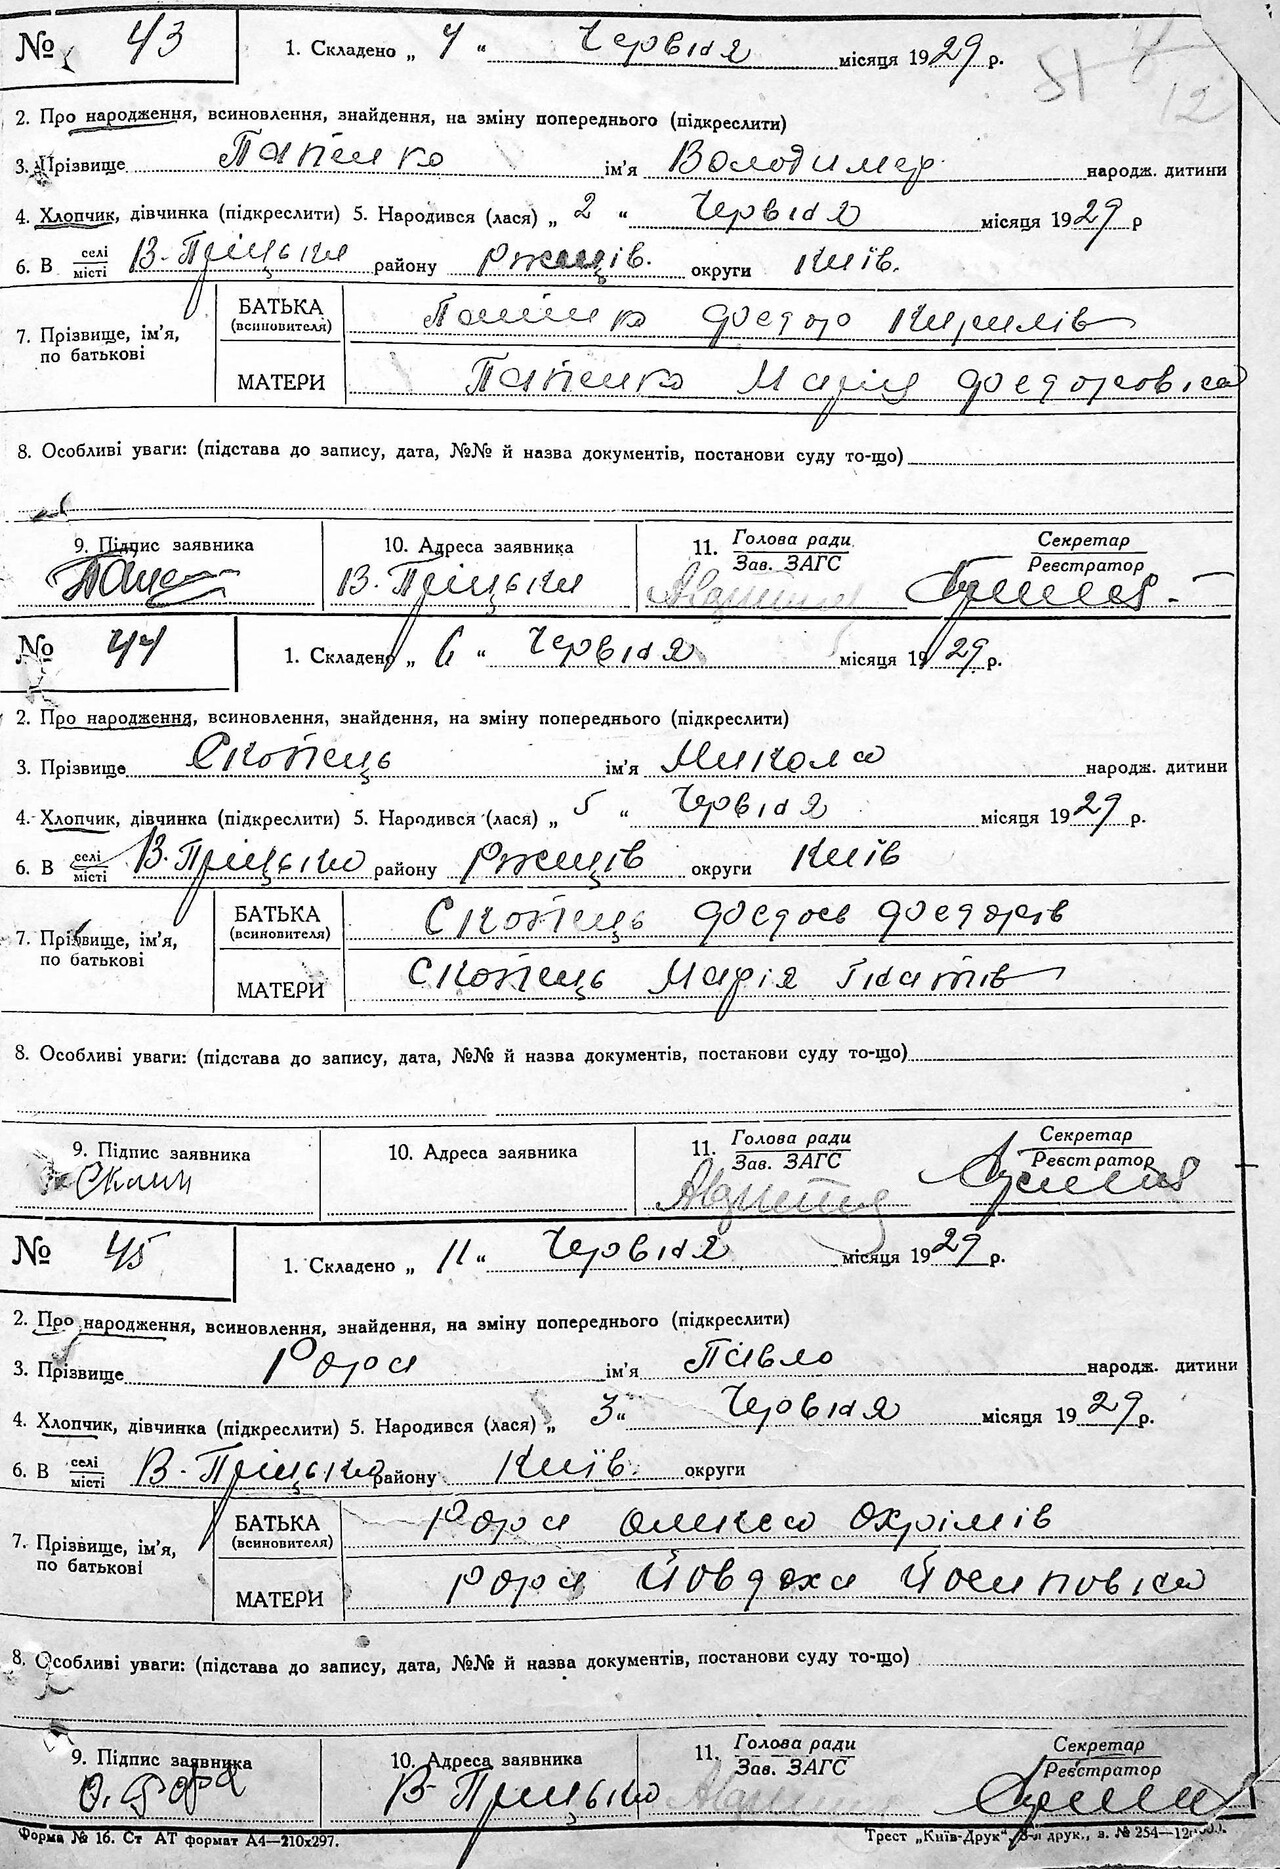 № 43 1. Складено „ 4 “ Червня місяця 1929 р.
51
12
2. Про народження, всиновлення, знайдення, на зміну попереднього (підкреслити)
3. Прізвище Папенко ім'я Володимер народж. дитини
4. Хлопчик, дівчинка (підкреслити) 5. Народився (лася) „ 2 “ Червня місяця 1929 р
6. В селі/місті В-Пріцьки району Ржищів. округи Київ.
7. Прізвище, ім'я, по батькові
БАТЬКА (всиновителя) Федор Кирилів
МАТЕРИ Папенко Марія Федоровна
8. Особливі уваги: (підстава до запису, дата, №№ й назва документів, постанови суду то-що)
9. Підпис заявника 10. Адреса заявника 11. Голова ради / Зав. ЗАГС Секретар / Реєстратор
В-Пріцьки
№ 44 1. Складено „ 6 “ Червня місяця 1929 р.
2. Про народження, всиновлення, знайдення, на зміну попереднього (підкреслити)
3. Прізвище Скопець ім'я Микола народж. дитини
4. Хлопчик, дівчинка (підкреслити) 5. Народився (лася) „ 5 “ Червня місяця 1929 р.
6. В селі/місті В-Пріцьки району Ржищів округи Київ
7. Прізвище, ім'я, по батькові
БАТЬКА (всиновителя) Скопець Федось Федорів
МАТЕРИ Скопець Марія Гнатів
8. Особливі уваги: (підстава до запису, дата, №№ й назва документів, постанови суду то-що)
9. Підпис заявника 10. Адреса заявника 11. Голова ради / Зав. ЗАГС Секретар / Реєстратор
№ 45 1. Складено „ 11 “ Червня місяця 1929 р.
2. Про народження, всиновлення, знайдення, на зміну попереднього (підкреслити)
3. Прізвище ім'я Павло народж. дитини
4. Хлопчик, дівчинка (підкреслити) 5. Народився (лася) „ 3 “ Червня місяця 1929 р.
6. В селі/місті В-Пріцьки району Київ. округи
7. Прізвище, ім'я, по батькові
БАТЬКА (всиновителя) Олекса Охрімів
МАТЕРИ Йовдоха Йосиповна
8. Особливі уваги: (підстава до запису, дата, №№ й назва документів, постанови суду то-що)
9. Підпис заявника 10. Адреса заявника 11. Голова ради / Зав. ЗАГС Секретар / Реєстратор
В-Пріцьки
Форма № 16. Ст АТ формат А4—210x297. Трест „Київ-Друк“, друк., з. № 254—